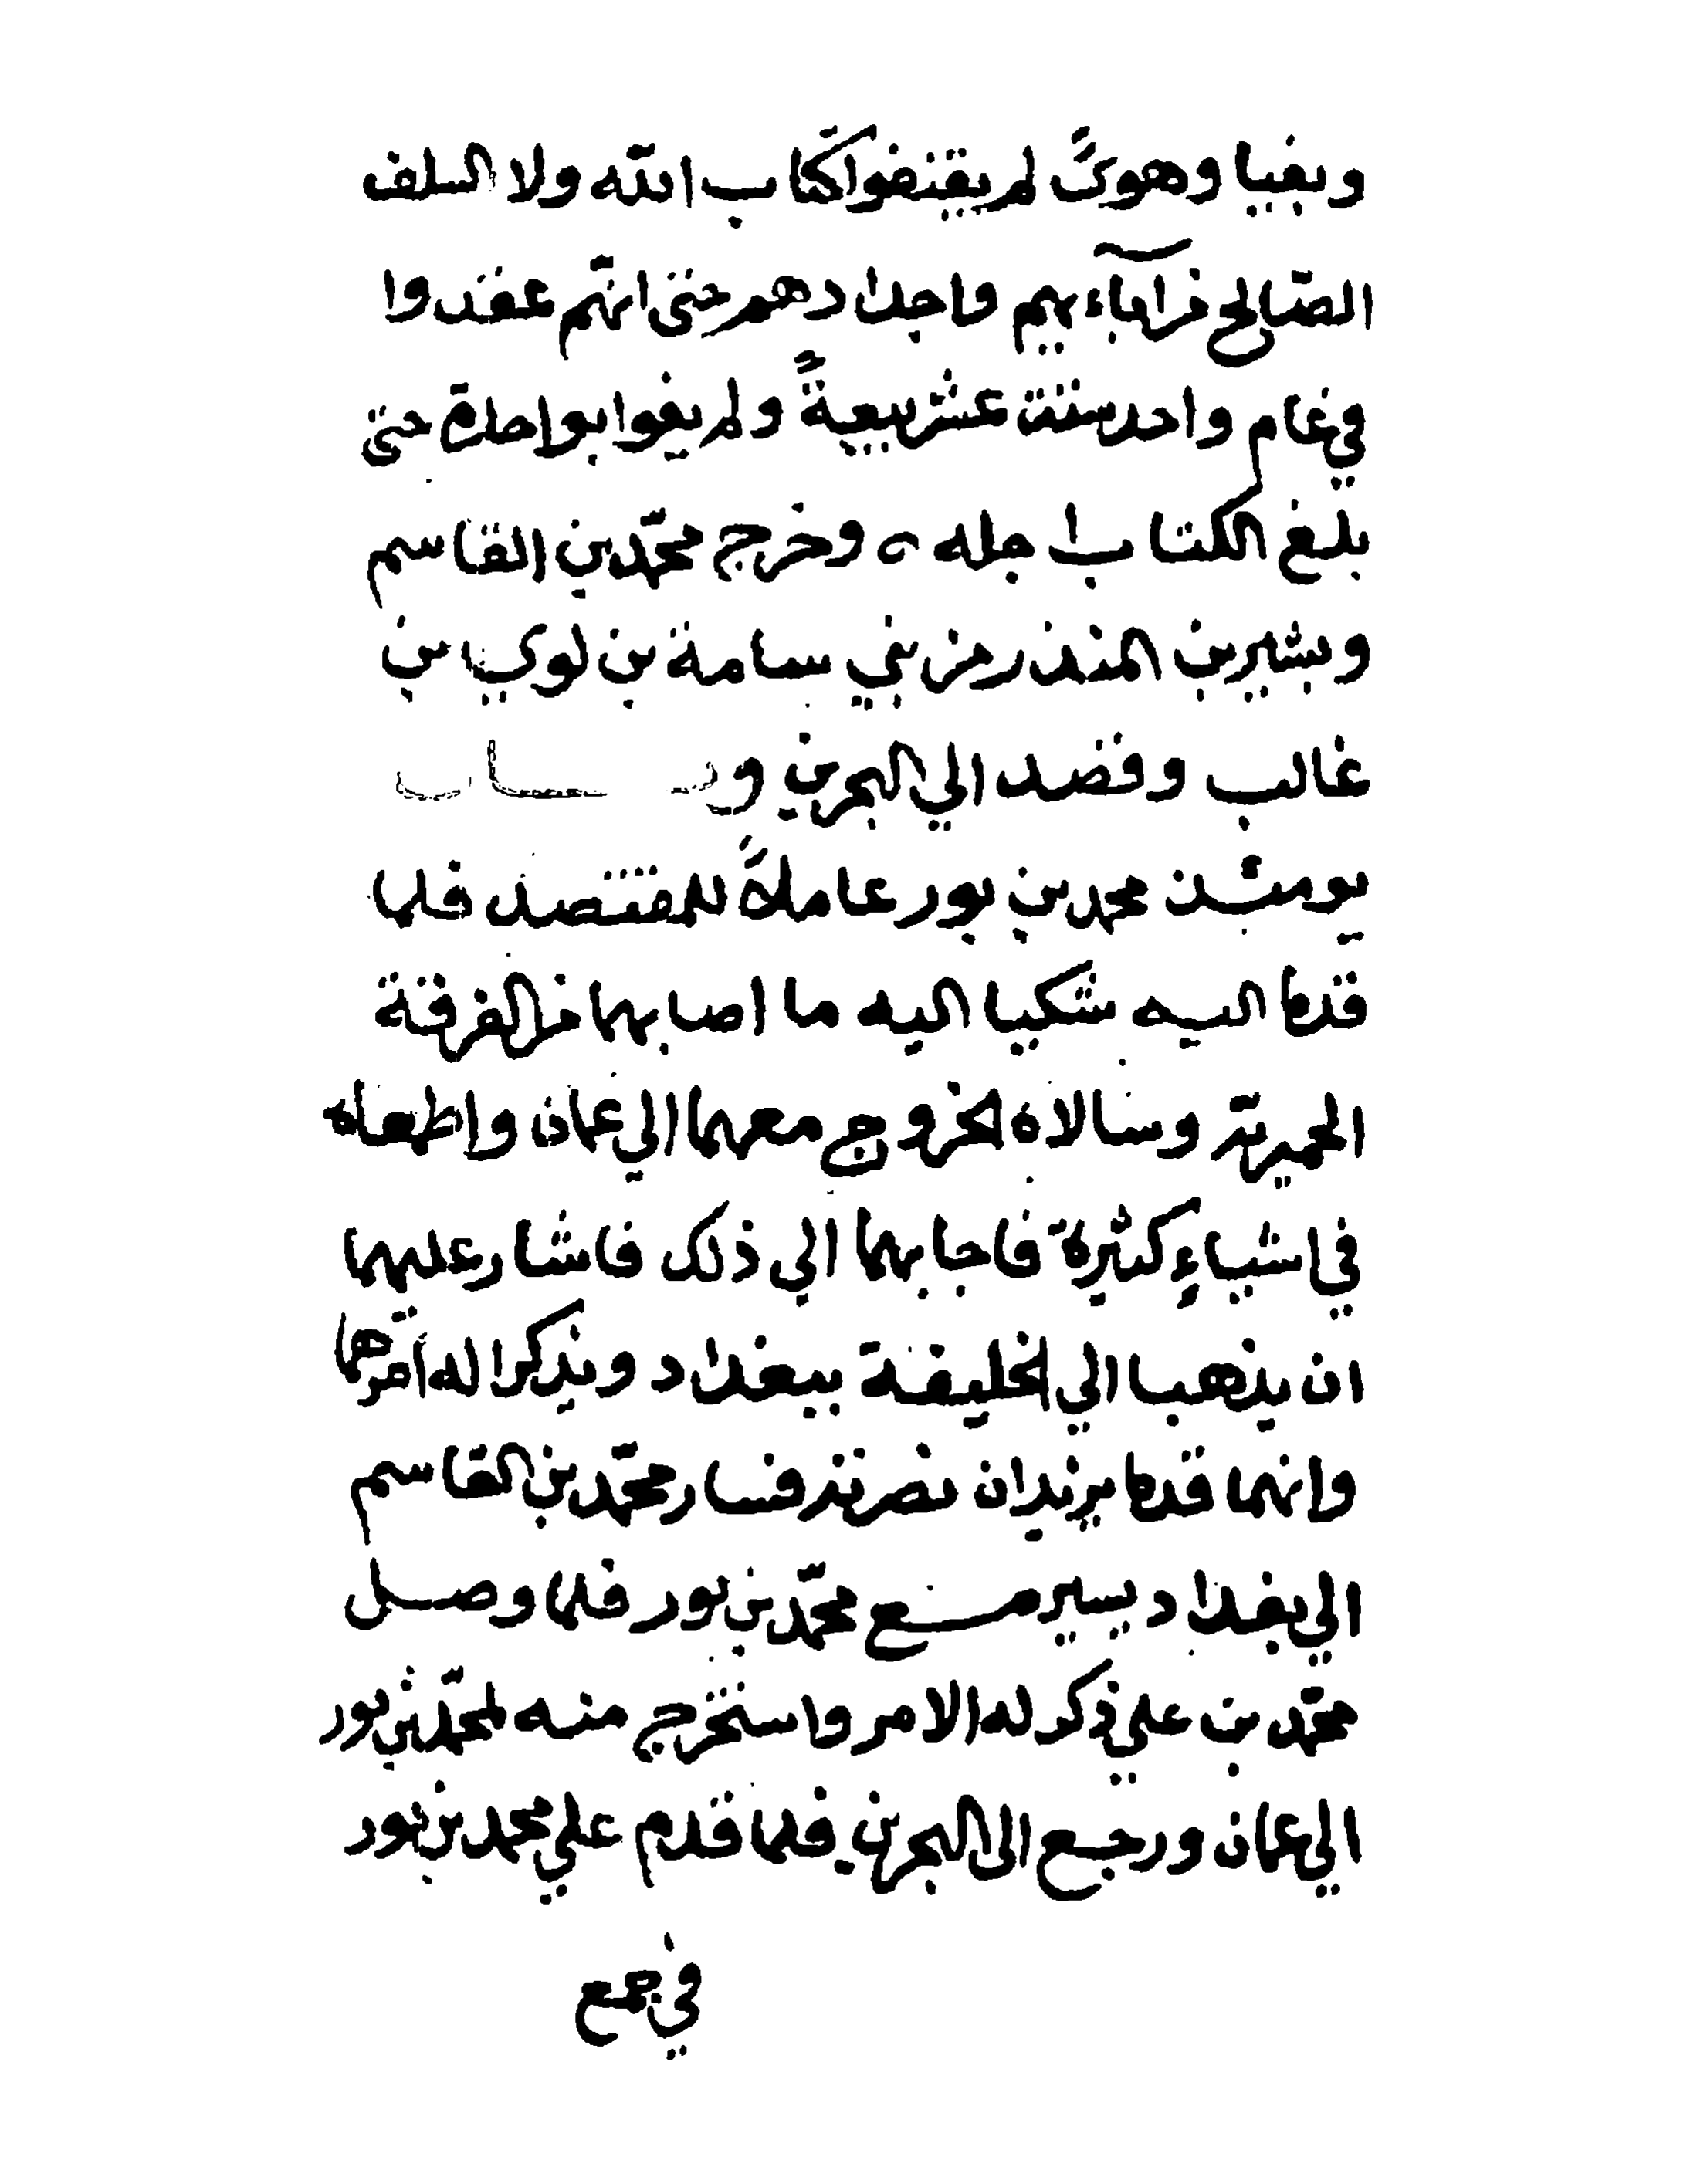 وبغيا وهوىً لم يقتفوا كتاب الله ولا السلف
الصّالح من آبائهم واجدادهم حتى انهّم عقدوا
في عام واحد ستت عشر بيعةً ولم يفوا بواحدة حتى
بلغ الكتاب اجله، وخرج محمّد بن القاسم
وبشير بن المنذر من بني سامة بن لوي بن
غالب وقصد الي البحرين و
يومئذ محمد بن بور عاملاً للمقتصد فلما
قدما اليه شكيا اليه ما اصابهما من الفرقة
الحميريّة وسالاه الخروج معهما الي عمان واطمعاه
في اشياءٍ كثيرة فاجابهما الى ذلك فاشار عليهما
ان يذهبا الي الخليفة ببغداد ويذكرا له امرهما
وانهما قدما يريدان نصرته فسار محمّد بن القاسم
الي بغداد يسير مع محمّد بن بور فلما وصل
محمّد بن علي ذكر له الامر واستخرج منه لمحمّد بن بور
الي عمان ورجع الى البحرين فلما قدم علي محمد بن بور
في جمع